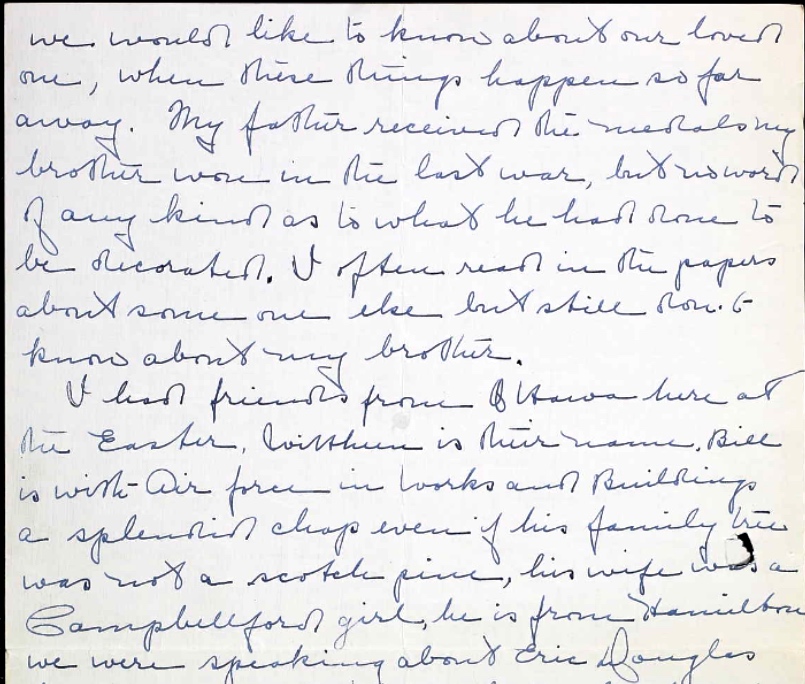 we would like to know about our loved
one, when these things happen so far
away. My father received the medals my
brother won in the last war, but no word
of any kind as to what he had done to
be decorated. I often read in the papers
about some one else but still don't
know about my brother.
I had friends from Ottawa here at
the Easter. is their name. Bill
is with Air force in works and Buildings
a splendid chap even if his family tree
was not a scotch pine, his wife was a
Campbellford girl, he is from Hamilton
we were speaking about Eric Douglas